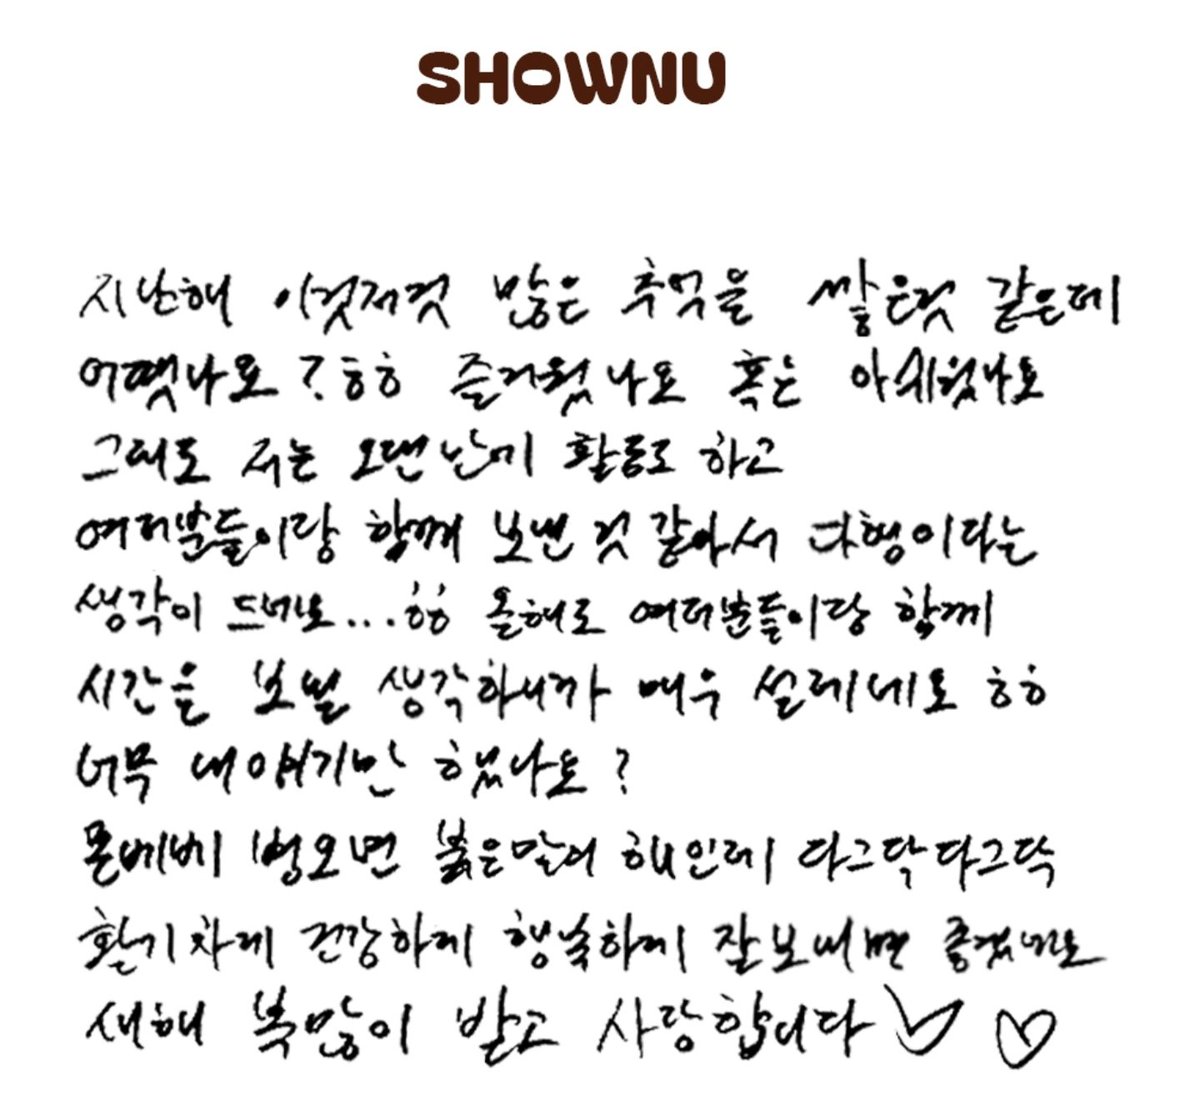 SHOWNU
지난해 이것저것 많은 추억을 쌓은것 같은데
어땟나요? ㅎㅎ 즐거웠나요 혹은 아쉬웠나요
그래도 저는 오랜만에 활동도 하고
여러분들이랑 함께 보낸 것 같아서 다행이라는
생각이 드네요...ㅎㅎ 올해도 여러분들이랑 함께
시간을 보낼 생각하니까 매우 설레네요 ㅎㅎ
너무 내 얘기만 했나요?
몬베베 병오면 붉은말의 해인데 다그닥다그닥
활기차게 건강하게 행복하게 잘보내면 좋겠네요
새해 복많이 받고 사랑합니다